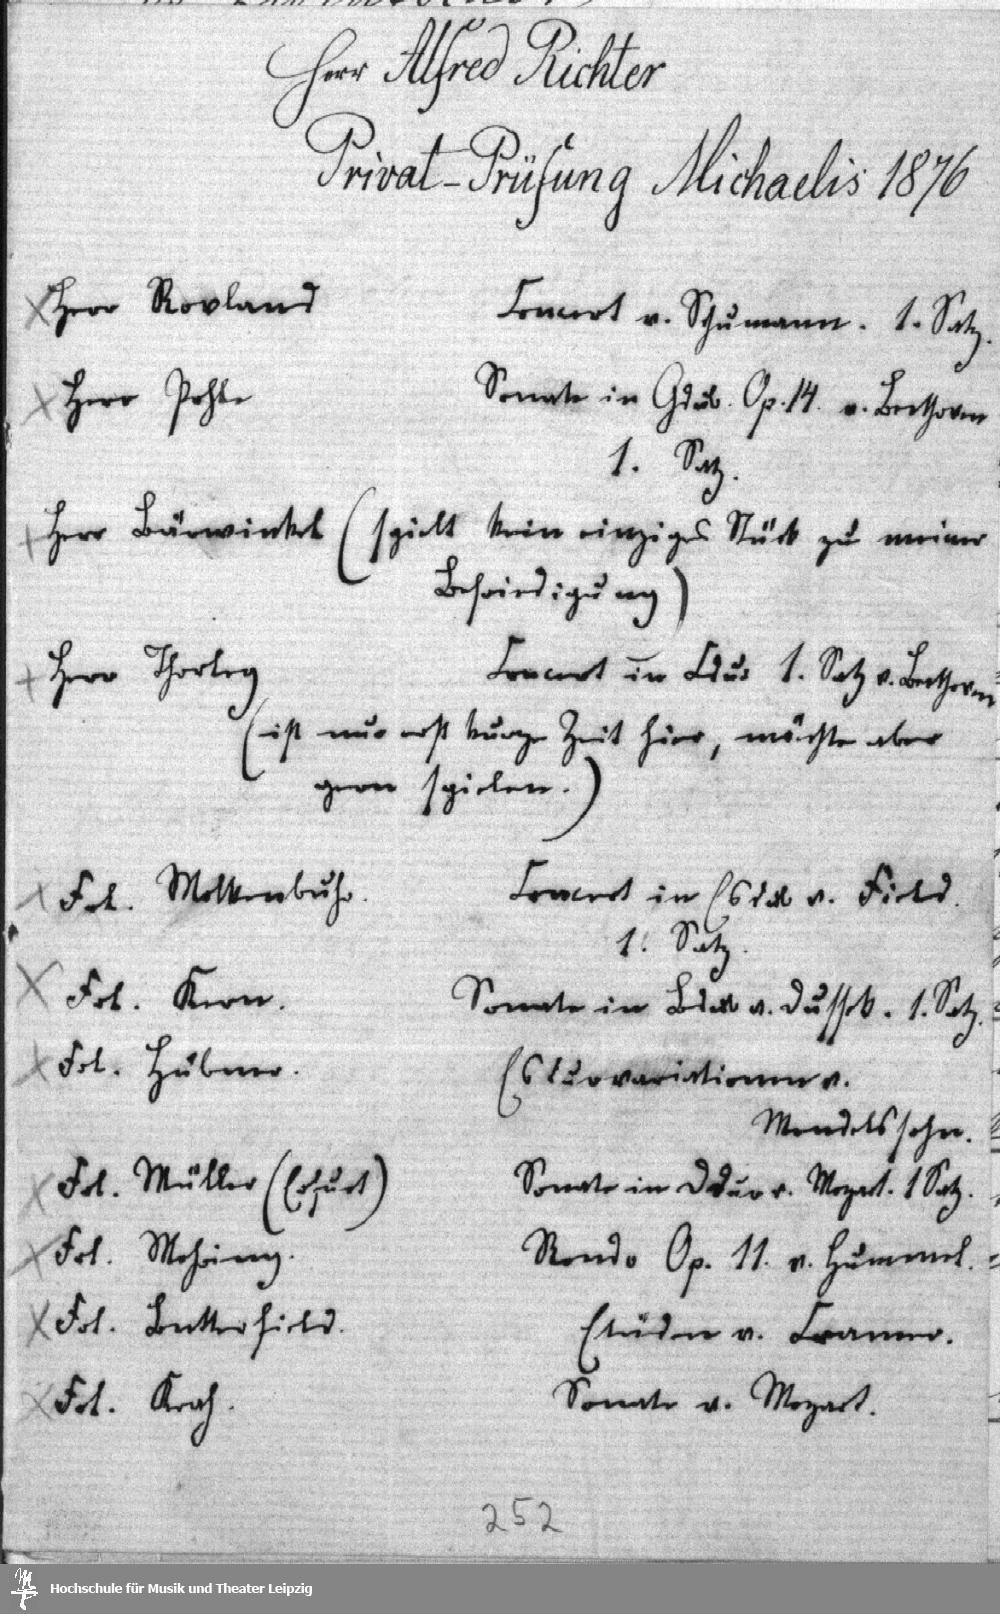 Herr Alfred Richter
Privat-Prüfung Michaelis 1876
Herr Rovland Concert v. Schumann. 1. Satz.
Herr Pohle Sonate in Gdur. Op. 14. v. Beethoven
1. Satz.
Herr Bärwinkel (spielt kein einziges Stück zu meiner
Befriedigung)
Herr Thorley Concert in Cdur 1. Satz v. Beethoven
(ist nur erst kurze Zeit hier, möchte aber
gern spielen.)
Frl. Molkenbuhr. Concert in Esdur v. Field.
1. Satz.
Frl. Kern. Sonate in Bdur v. Dussek. 1. Satz.
Frl. Hübner. Esdurvariationen v.
Mendelssohn.
Frl. Müller (Erfurt) Sonate in Ddur v. Mozart. 1 Satz.
Frl. Mohring. Rondo Op. 11. v. Hummel.
Frl. Butterfield. Etüden v. Cramer.
Frl. Krah. Sonate v. Mozart.
252
Hochschule für Musik und Theater Leipzig